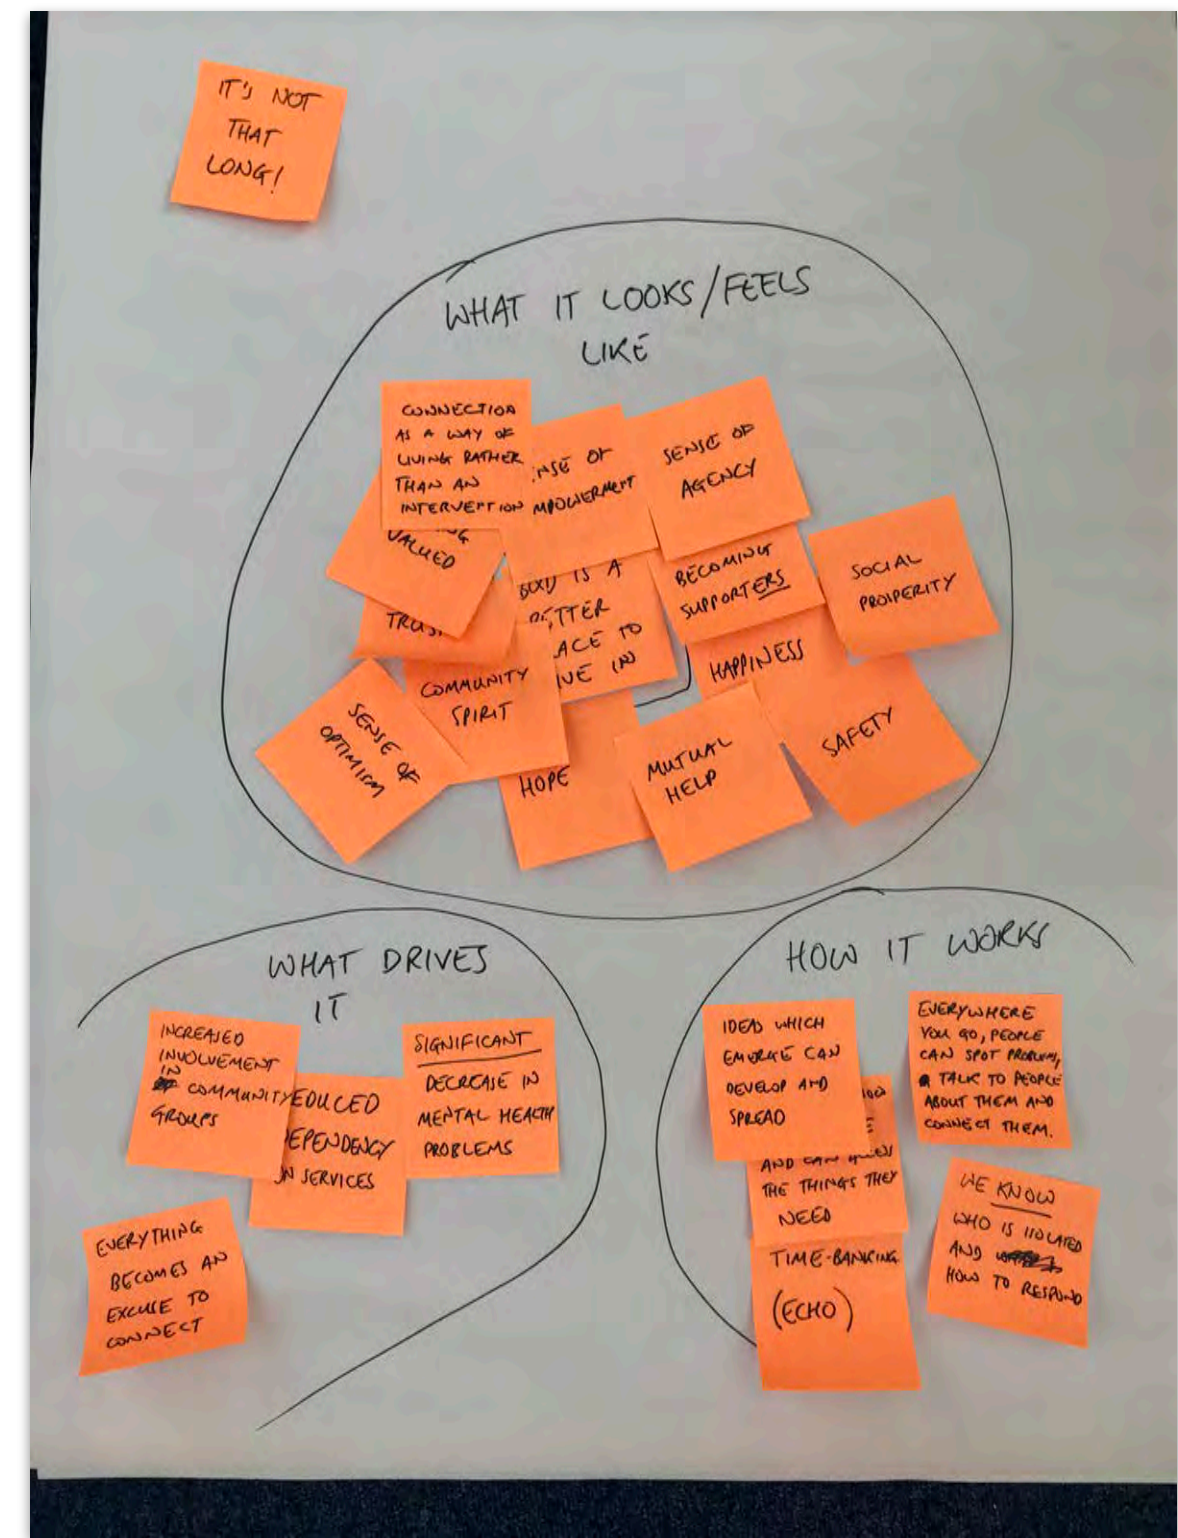 IT'S NOT
THAT
LONG!
WHAT IT LOOKS/FEELS
LIKE
CONNECTION
AS A WAY OF
LIVING RATHER
THAN AN
INTERVENTION
OF
SENSE OF
AGENCY
VALUED
TRUST
IS A
BETTER
TO
IN
BECOMING
SUPPORTERS
SOCIAL
PROSPERITY
COMMUNITY
SPIRIT
HAPPINESS
SENSE OF
OPTIMISM
HOPE
MUTUAL
HELP
SAFETY
WHAT DRIVES
IT
INCREASED
INVOLVEMENT
IN
COMMUNITY
GROUPS
EDUCED
EPENDENCY
N SERVICES
SIGNIFICANT
DECREASE IN
MENTAL HEALTH
PROBLEMS
EVERYTHING
BECOMES AN
EXCUSE TO
CONNECT
HOW IT WORKS
IDEAS WHICH
EMERGE CAN
DEVELOP AND
SPREAD
EVERYWHERE
YOU GO, PEOPLE
CAN SPOT PROBLEMS,
TALK TO PEOPLE
ABOUT THEM AND
CONNECT THEM.
AND CAN ACCESS
THE THINGS THEY
NEED
TIME-BANKING
(ECHO)
WE KNOW
WHO IS ISOLATED
AND
HOW TO RESPOND